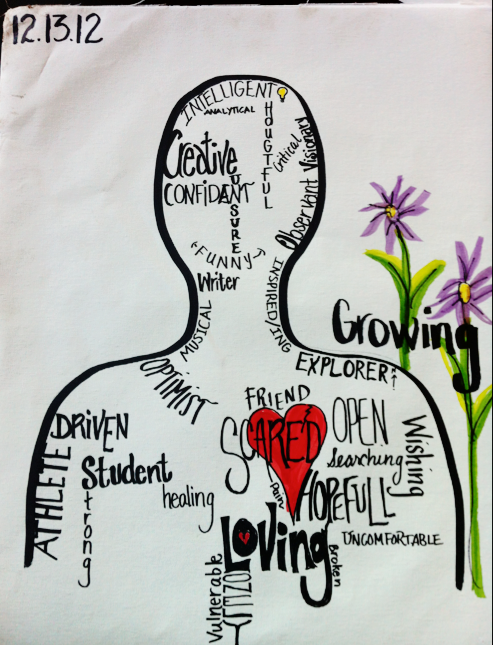 12.13.12
INTELLIGENT
ANALYTICAL
THOUGTFUL
Critical
Visionary
Observant
Creative
CONFIDANT
UNSURE
"FUNNY"
Writer
INSPIRED/ING
MUSICAL
Growing
OPTIMIST
EXPLORER
FRIEND
DRIVEN
SCARED
OPEN
Wishing
ATHLETE
Student
Strong
Searching
healing
Pain
HOPEFULL
Loving
UNCOMFORTABLE
Broken
Vulnerable